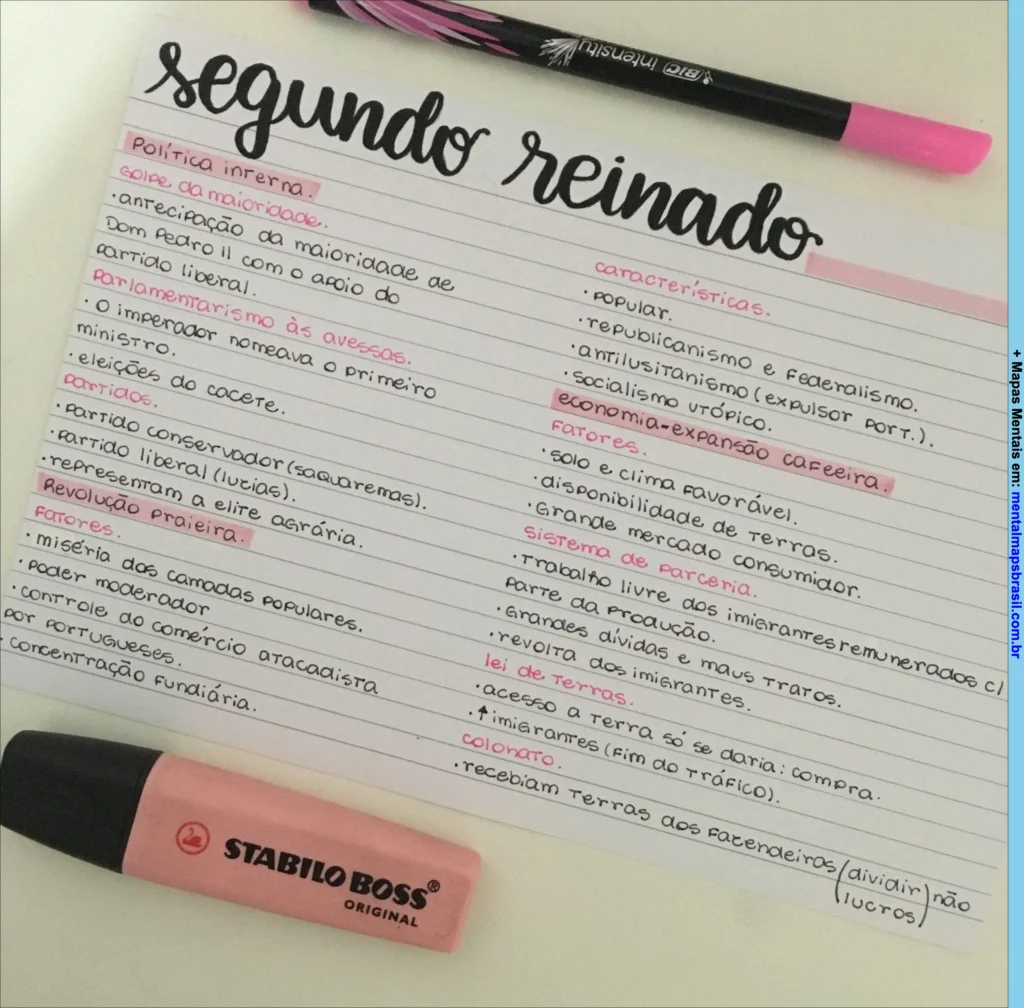 BIC intensity
segundo reinado
Política interna.
Golpe da maioridade.
·antecipação da maioridade de
Dom Pedro II com o apoio do
partido liberal.
Parlamentarismo às avessas.
·O imperador nomeava o primeiro
ministro.
·eleições do cacete.
Partidos.
·Partido conservador (saquaremas).
·Partido liberal (luzias).
·representam a elite agrária.
Revolução praieira.
Fatores.
·miséria das camadas populares.
·Poder moderador
·controle do comércio atacadista
por portugueses.
·concentração fundiária.
características.
·popular.
·republicanismo e federalismo.
·antilusitanismo (expulsor port.).
·socialismo utópico.
economia-expansão cafeeira.
Fatores.
·solo e clima favorável.
·disponibilidade de terras.
·Grande mercado consumidor.
sistema de parceria.
·Trabalho livre dos imigrantes remunerados c/
parte da produção.
·Grandes dívidas e maus tratos.
·revolta dos imigrantes.
lei de terras.
·acesso a terra só se daria: compra.
·↑imigrantes (fim do tráfico).
colonato.
·recebiam terras dos fazendeiros (dividir lucros) não
STABILO BOSS®
ORIGINAL
+ Mapas Mentais em: mentalmapsbrasil.com.br